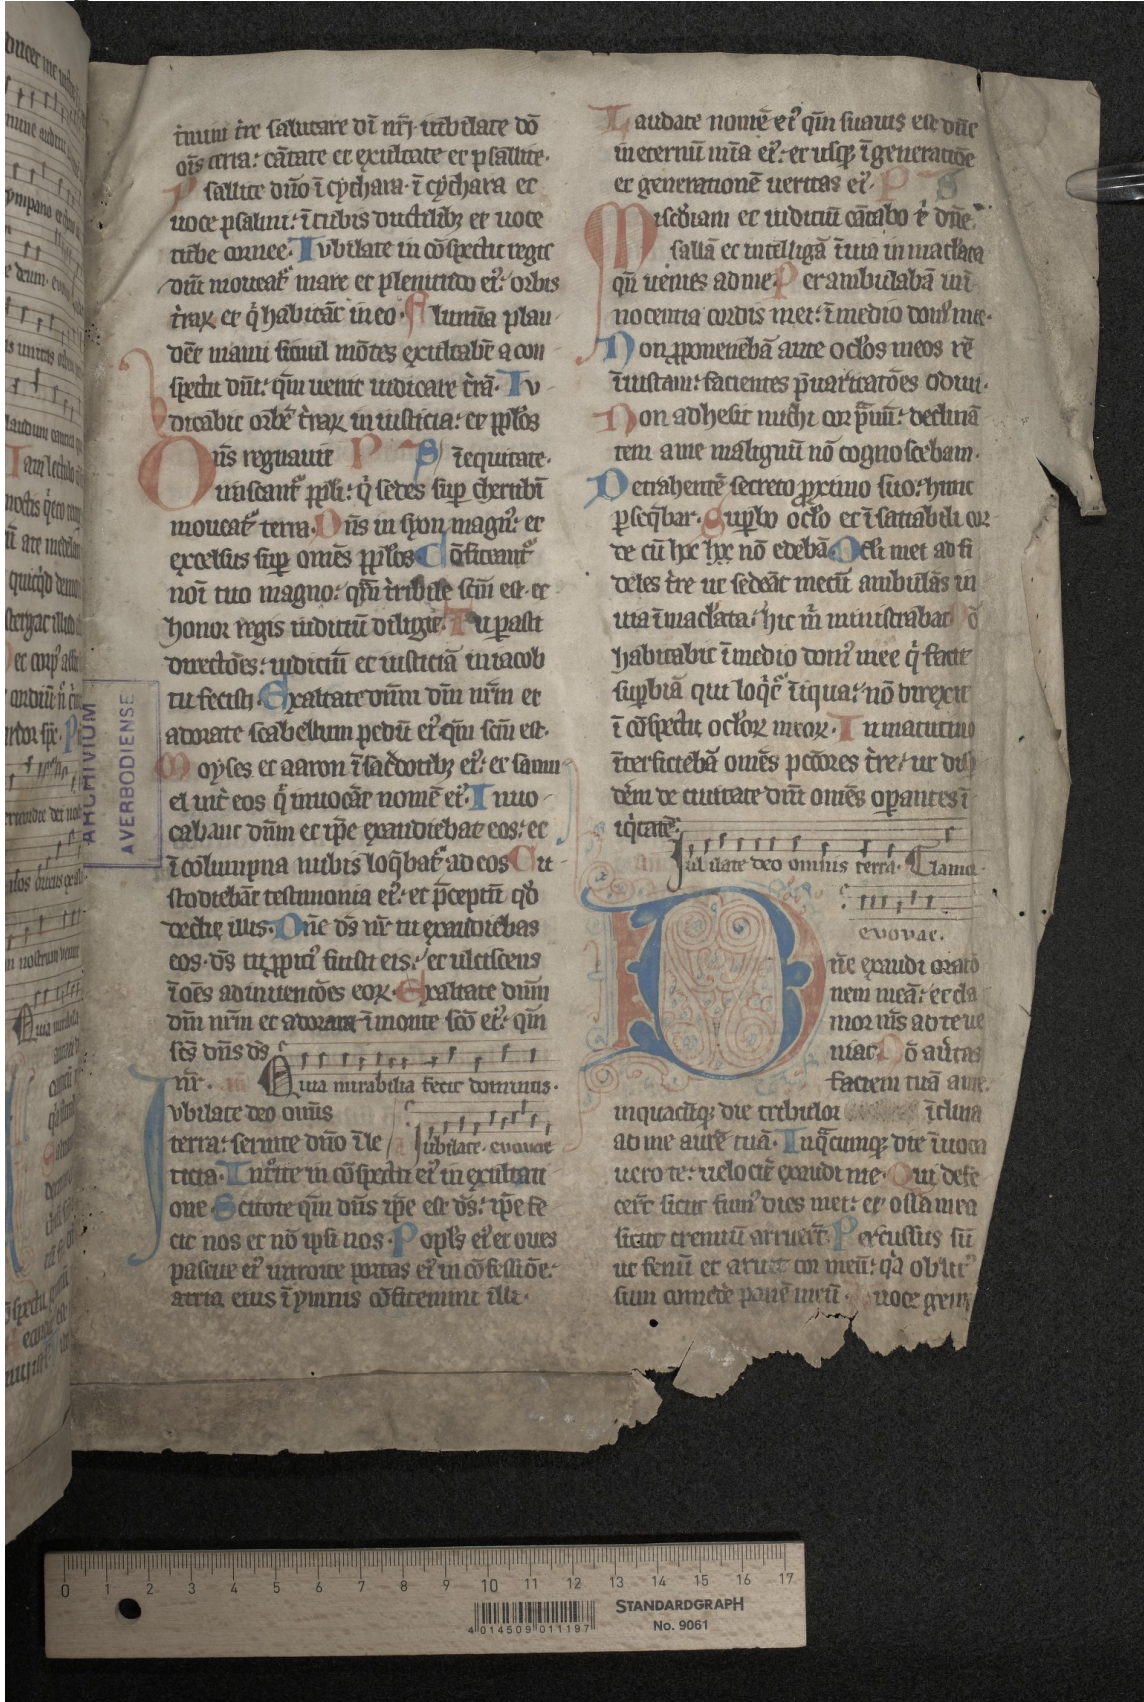 t̄mini t̄re salutare dī nr̄i· iubilate dō
oīs terra: cātate et exultate et psallite·
Psallite dn̄o ī cythara· ī cythara et
uoce psalmi: ī tubis ductilibꝫ et uoce
tube cornee· Iubilate in cōspectu regis
dn̄i moueat᷑ mare et plenitudo eiꝰ: orbis
t̄raꝝ et q̇ habitāt in eo· Flumīa plau
dēt manu simul mōtes exultabūt a con
spectu dn̄i: qm̄ uenit iudicare t̄rā· Iu
dicabit orbē t̄raꝝ in iusticia: et pp̄los
Dn̄s regnauit PS ī equitate·
irascant᷑ pp̄li: q̇ sedes suꝑ cherubī
moueat᷑ terra· Dn̄s in syon magnꝰ: et
excelsus suꝑ omēs pp̄los· Cōfiteant᷑
noī tuo magno: qm̄ tribile scm̄ est· et
honor regis iudiciū diligit· Tu parasti
directōes: iudiciū et iusticiā in iacob
tu fecisti· Exaltate dnm̄ dm̄ nr̄m et
adorate scabellum pedū eiꝰ· qm̄ scm̄ est·
Moyses et aaron ī sac̄dotibꝫ eiꝰ: et samu
el int̄ eos q̇ inuocāt nomē eiꝰ· Inuo
cabant dn̄m et ip̄e exaudiebat eos: et
ī colūmpna nubis loq̄bat᷑ ad eos· Cu
stodiebāt testimonia eiꝰ: et p̄ceptū qd̄
dedit illis· Dn̄e ds̄ nr̄ tu exaudiebas
eos· ds̄ tu ꝓpiciꝰ fuisti eis: et ulciscens
ī oēs adinuentōes eoꝝ· Exaltate dnm̄
dm̄ nr̄m et adorate ī monte scō eiꝰ: qm̄
scs̄ dn̄s ds̄
nr̄· Quia mirabilia fecit dominus·
Iubilate deo omīs
terra: seruite dn̄o ī le Iubilate· euouae
ticia· Intͦite in cōspectu eiꝰ in exultati
one· Scitote qm̄ dn̄s ip̄e est ds̄: ip̄e fe
cit nos et nō ipsi nos· Popls̄ eiꝰ et oues
pascue eiꝰ introite portas eiꝰ in cōfessiōe:
atria eius ī ymnis cōfitemini illi·
Laudate nomē eiꝰ qm̄ suauis est dn̄s
in eternū mīa eiꝰ: et usqꝫ ī generatiōe
et generationē ueritas eiꝰ· PS
Misc̄diam et iudiciū cātabo t̄ dn̄e·
psallā et intelligā ī uia inmac̄lata
qn̄ uenies ad me· Perambulabā in ī
nocentia cordis mei: ī medio domꝰ mee·
Non ꝓponebā ante oc̄los meos rē
īiustam: facientes p̄uaricatōes odiui·
Non adhesit michi cor prauū: declinā
tem a me malignū nō cognoscebam·
Detrahentē secreto ꝓximo suo: hunc
ꝑseq̄bar· Suꝑbo oc̄lo et ī satiabili cor
de cū hoc hoc nō edebā· Oc̄li mei ad fi
deles t̄re ut sedeāt mecū ambulās in
uia īmac̄lata: hic m̄ ministrabat· Nō
habitabit ī medio domꝰ mee q̇ facit
suꝑbiā qui loq̇t᷑ īiqua: nō direxit
ī cōspectu oc̄loꝝ meoꝝ· In matutino
īterficiebā omēs pctōres t̄re: ut disꝑ
dēm de ciuitate dn̄i omēs oꝑantes ī
iq̇tatē·
Iubilate deo omnis terra· Clamor·
euouae.
Dn̄e exaudi oratō
nem meā: et cla
mor ms̄ ad te ue
niat· Nō au̇tas
faciem tuā a me:
in quacūqꝫ die tribulor īclina
ad me aurē tuā· In q̄cumqꝫ die īuoca
uero te: uelocit̄ exaudi me· Qui defe
cer̄t sicut fumꝰ dies mei: et ossa mea
sicut cremiū aruer̄t· Percussus sū
ut fenū et aruit cor meū: qa oblitꝰ
sum comedē panē meū· A uoce gem
ARCHIVIUM
AVERBODIENSE
0 1 2 3 4 5 6 7 8 9 10 11 12 13 14 15 16 17
4 014509 011197
STANDARDGRAPH
No. 9061